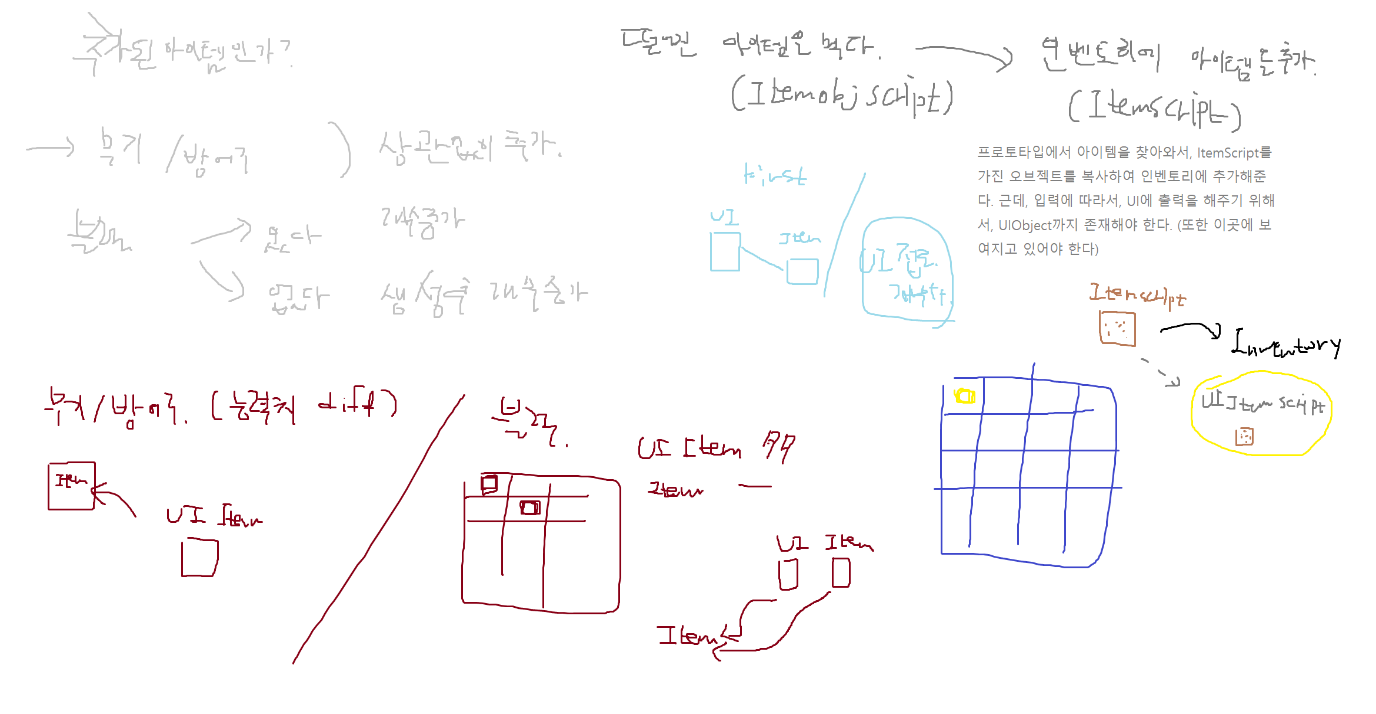 추가된 아이템인가?
→ 무기 / 방어구 ) 상관없이 추가.
물약 있다 개수증가
없다 생성후 개수증가
떨어진 아이템을 먹다. → 인벤토리에 아이템을 추가.
(Itemobj script) (ItemScript)
프로토타입에서 아이템을 찾아와서, ItemScript를
가진 오브젝트를 복사하여 인벤토리에 추가해준
다. 근데, 입력에 따라서, UI에 출력을 해주기 위해
서, UIObject까지 존재해야 한다. (또한 이곳에 보
여지고 있어야 한다)
First
UI
Item
UI
Itemscript
Inventory
UI Item script
무기/방어구. (능력치 diff)
Item
UI Item
물약.
UI Item
Item
UI Item
Item